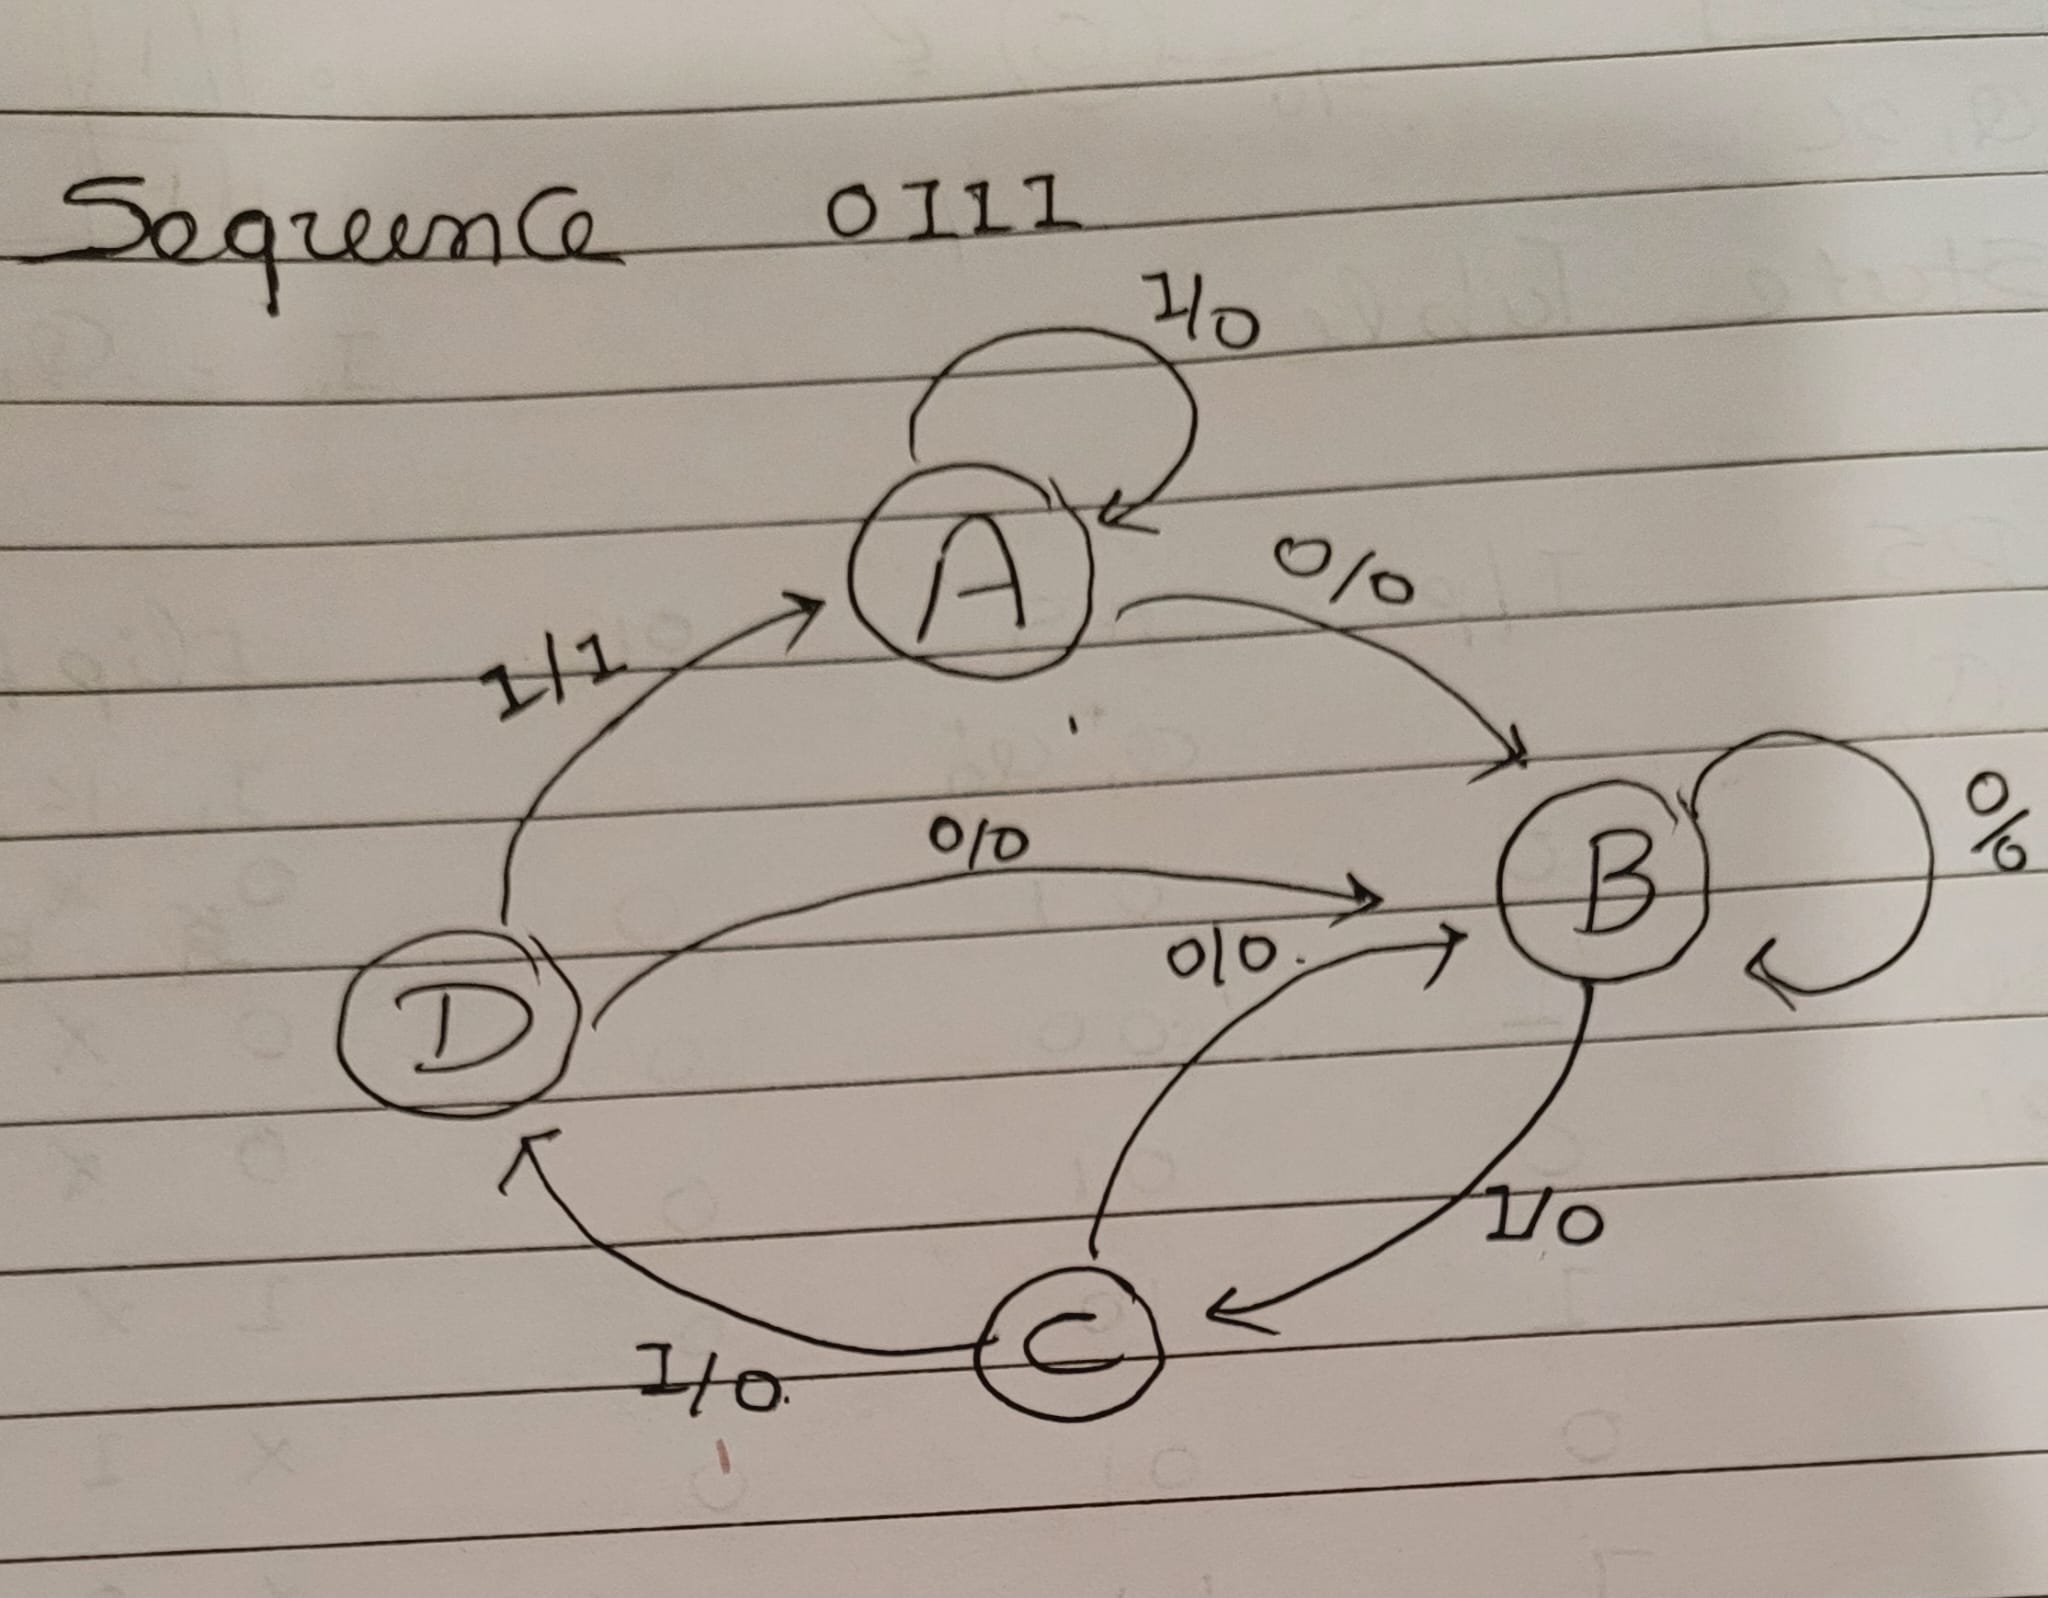 Sequence 0111
1/0
A
0/0
1/1
B
0/0
0/0
0/0
D
1/0
C
1/0